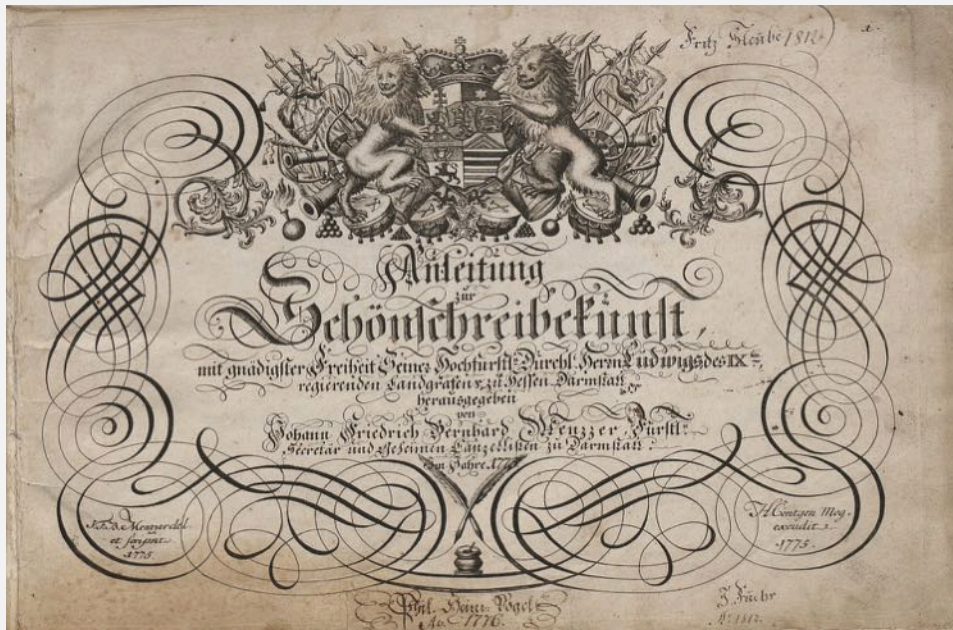 Fritz Steübe 1812
Anleitung
zur
Schönschreibekunst,
mit gnädigster Freiheit Seiner Hochfürstl. Durchl. Herrn Ludwigs des IX.
regierenden Landgrafen zu Hessen Darmstatt
herausgegeben
von
Johann Friedrich Bernhard Menzzer Fürstl.
Secretär und Geheimen Canzellisten zu Darmstatt.
im Jahre
J.F.B. Menzzer del.
et scripsit
1775.
H. Cöntgen Mog.
excudit
1775.
Phil. Henr. Vogel
Ao. 1776.
1812.